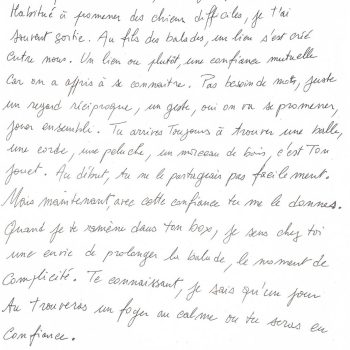 Habitué à promener des chiens difficiles, je t'ai
souvent sortie. Au fils des balades, un lien s'est créé
entre nous. Un lien ou plutôt, une confiance mutuelle
car on a appris à se connaitre. Pas besoin de mots, juste
un regard réciproque, un geste, oui on va se promener,
jouer ensemble. Tu arrives toujours à trouver une balle,
une corde, une peluche, un morceau de bois, c'est Ton
jouet. Au début, tu ne le partageais pas facilement.
Mais maintenant, avec cette confiance tu me le donnes.
Quand je te ramène dans ton box, je sens chez toi
une envie de prolonger la balade, le moment de
complicité. Te connaissant, je sais qu'un jour
tu trouveras un foyer au calme ou tu seras en
confiance.